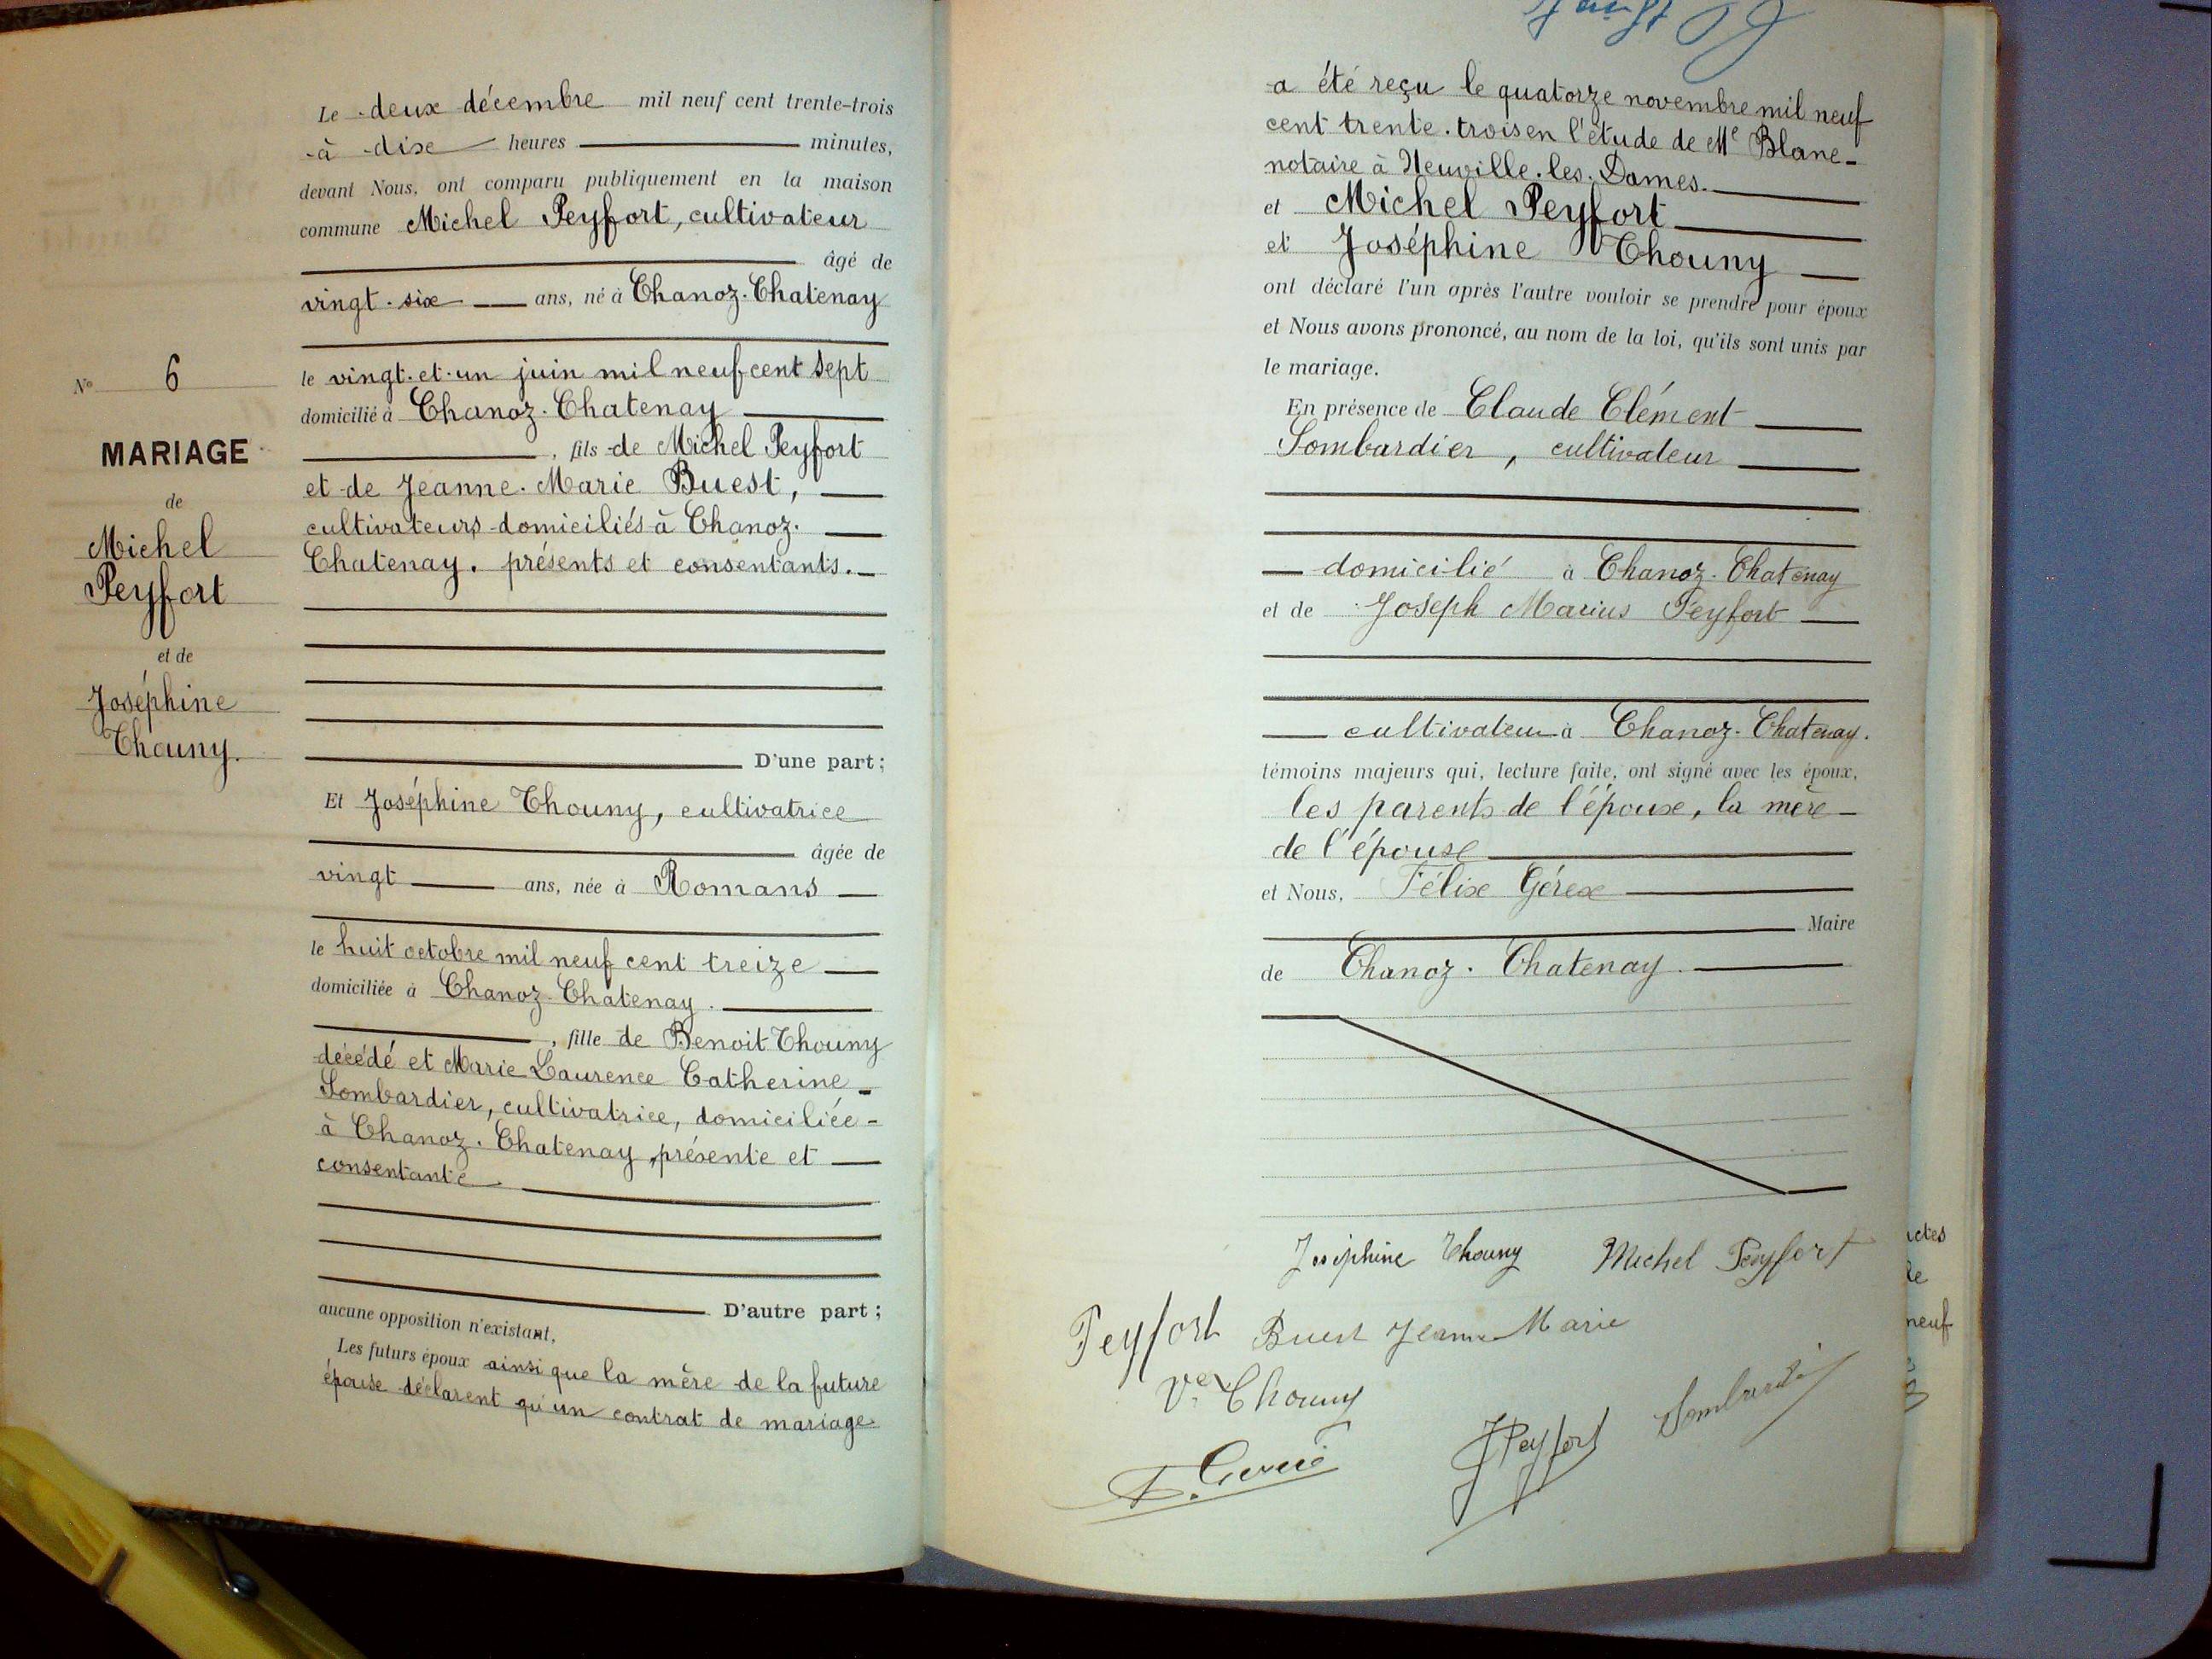 Le deux décembre mil neuf cent trente-trois
à dix heures minutes,
devant Nous, ont comparu publiquement en la maison
commune Michel Peyfort, cultivateur
âgé de
vingt-six ans, né à Chanoz-Chatenay
le vingt-et-un juin mil neuf cent sept
domicilié à Chanoz-Chatenay
, fils de Michel Peyfort
et de Jeanne-Marie Buest,
cultivateurs domiciliés à Chanoz-
Chatenay. présents et consentants.
D'une part ;
N° 6
MARIAGE
de
Michel
Peyfort
et de
Joséphine
Thouny.
Et Joséphine Thouny, cultivatrice
âgée de
vingt ans, née à Romans
le huit octobre mil neuf cent treize
domiciliée à Chanoz-Chatenay.
, fille de Benoit Thouny
décédé et Marie Laurence Catherine
Sombardier, cultivatrice, domiciliée
à Chanoz-Chatenay, présente et
consentante
D'autre part ;
aucune opposition n'existant,
Les futurs époux ainsi que la mère de la future
épouse déclarent qu'un contrat de mariage
a été reçu le quatorze novembre mil neuf
cent trente-trois en l'étude de Me Blanc
notaire à Neuville-les-Dames.
et Michel Peyfort
et Joséphine Thouny
ont déclaré l'un après l'autre vouloir se prendre pour époux
et Nous avons prononcé, au nom de la loi, qu'ils sont unis par
le mariage.
En présence de Claude Clément
Sombardier, cultivateur
domicilié à Chanoz-Chatenay
et de Joseph Marius Peyfort
cultivateur à Chanoz-Chatenay.
témoins majeurs qui, lecture faite, ont signé avec les époux,
les parents de l'époux, la mère
de l'épouse
et Nous, Félix Gérex
Maire
de Chanoz-Chatenay.
Joséphine Thouny Michel Peyfort
Peyfort Buest Jeanne Marie
Ve Thouny
JPeyfort Sombardier
actes
le
neuf